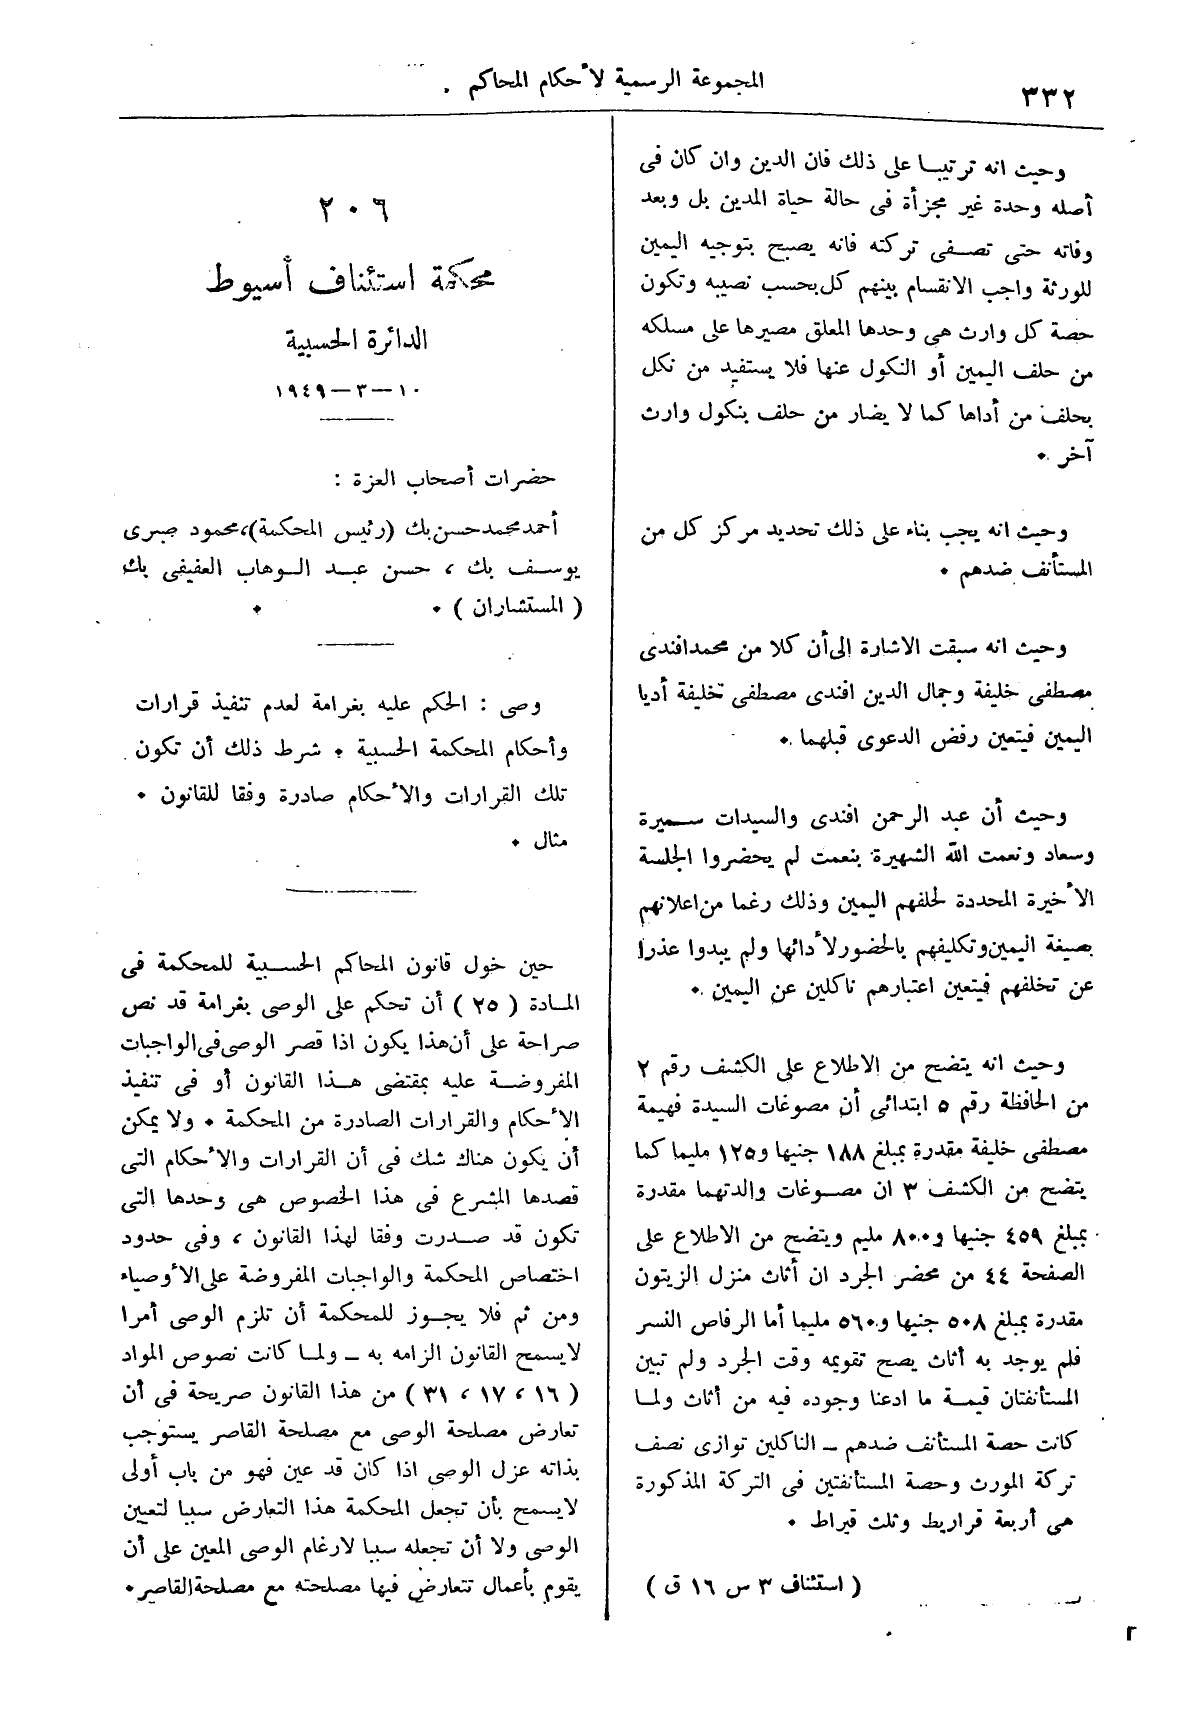 ٣٣٢
المجموعة الرسمية لأحكام المحاكم
وحيث انه ترتيبا على ذلك فان الدين وان كان فى
أصله وحدة غير مجزأة فى حالة حياة المدين بل وبعد
وفاته حتى تصفى تركته فانه يصبح بتوجيه اليمين
للورثة واجب الانقسام بينهم كل بحسب نصيبه وتكون
حصة كل وارث هى وحدها المعلق مصيرها على مسلكه
من حلف اليمين أو النكول عنها فلا يستفيد من نكل
بحلف من أداها كما لا يضار من حلف بنكول وارث
آخر .
وحيث انه يجب بناء على ذلك تحديد مركز كل من
المستأنف ضدهم .
وحيث انه سبقت الاشارة الى أن كلا من محمد افندى
مصطفى خليفة وجمال الدين افندى مصطفى خليفة أديا
اليمين فيتعين رفض الدعوى قبلهما .
وحيث أن عبد الرحمن افندى والسيدات سميرة
وسعاد ونعمت الله الشهيرة بنعمت لم يحضروا الجلسة
الأخيرة المحددة لحلفهم اليمين وذلك رغما من اعلانهم
بصيغة اليمين وتكليفهم بالحضور لأدائها ولم يبدوا عذرا
عن تخلفهم فيتعين اعتبارهم ناكلين عن اليمين .
وحيث انه يتضح من الاطلاع على الكشف رقم ٢
من الحافظة رقم ٥ ابتدائى أن مصوغات السيدة فهيمة
مصطفى خليفة مقدرة بمبلغ ١٨٨ جنيها و١٢٥ مليما كما
يتضح من الكشف ٣ ان مصوغات والدتهما مقدرة
بمبلغ ٤٥٩ جنيها و٨٠٠ مليم ويتضح من الاطلاع على
الصفحة ٤٤ من محضر الجرد ان أثاث منزل الزيتون
مقدرة بمبلغ ٥٠٨ جنيها و٥٦٠ مليما أما الرفاص النسر
فلم يوجد به أثاث يصح تقويمه وقت الجرد ولم تبين
المستأنفتان قيمة ما ادعنا وجوده فيه من أثاث ولما
كانت حصة المستأنف ضدهم – الناكلين توازى نصف
تركة المورث وحصة المستأنفتين فى التركة المذكورة
هى أربعة قراريط وثلث قيراط .
( استئناف ٣ س ١٦ ق )
٢٠٦
محكمة استئناف أسيوط
الدائرة الحسبية
١٠ – ٣ – ١٩٤٩
حضرات أصحاب العزة :
أحمد محمد حسن بك (رئيس المحكمة)، محمود صبرى
يوسف بك ، حسن عبد الوهاب العفيفى بك
( المستشاران ) .
وصى : الحكم عليه بغرامة لعدم تنفيذ قرارات
وأحكام المحكمة الحسبية . شرط ذلك أن تكون
تلك القرارات والأحكام صادرة وفقا للقانون .
مثال .
حين خول قانون المحاكم الحسبية للمحكمة فى
المادة ( ٢٥ ) أن تحكم على الوصى بغرامة قد نص
صراحة على أن هذا يكون اذا قصر الوصى فى الواجبات
المفروضة عليه بمقتضى هذا القانون أو فى تنفيذ
الأحكام والقرارات الصادرة من المحكمة . ولا يمكن
أن يكون هناك شك فى أن القرارات والأحكام التى
قصدها المشرع فى هذا الخصوص هى وحدها التى
تكون قد صدرت وفقا لهذا القانون ، وفى حدود
اختصاص المحكمة والواجبات المفروضة على الأوصياء
ومن ثم فلا يجوز للمحكمة أن تلزم الوصى أمرا
لايسمح القانون الزامه به – ولما كانت نصوص المواد
( ١٦ ، ١٧ ، ٣١ ) من هذا القانون صريحة فى أن
تعارض مصلحة الوصى مع مصلحة القاصر يستوجب
بذاته عزل الوصى اذا كان قد عين فهو من باب أولى
لايسمح بأن تجعل المحكمة هذا التعارض سببا لتعيين
الوصى ولا أن تجعله سببا لارغام الوصى المعين على أن
يقوم بأعمال تتعارض فيها مصلحته مع مصلحة القاصر .